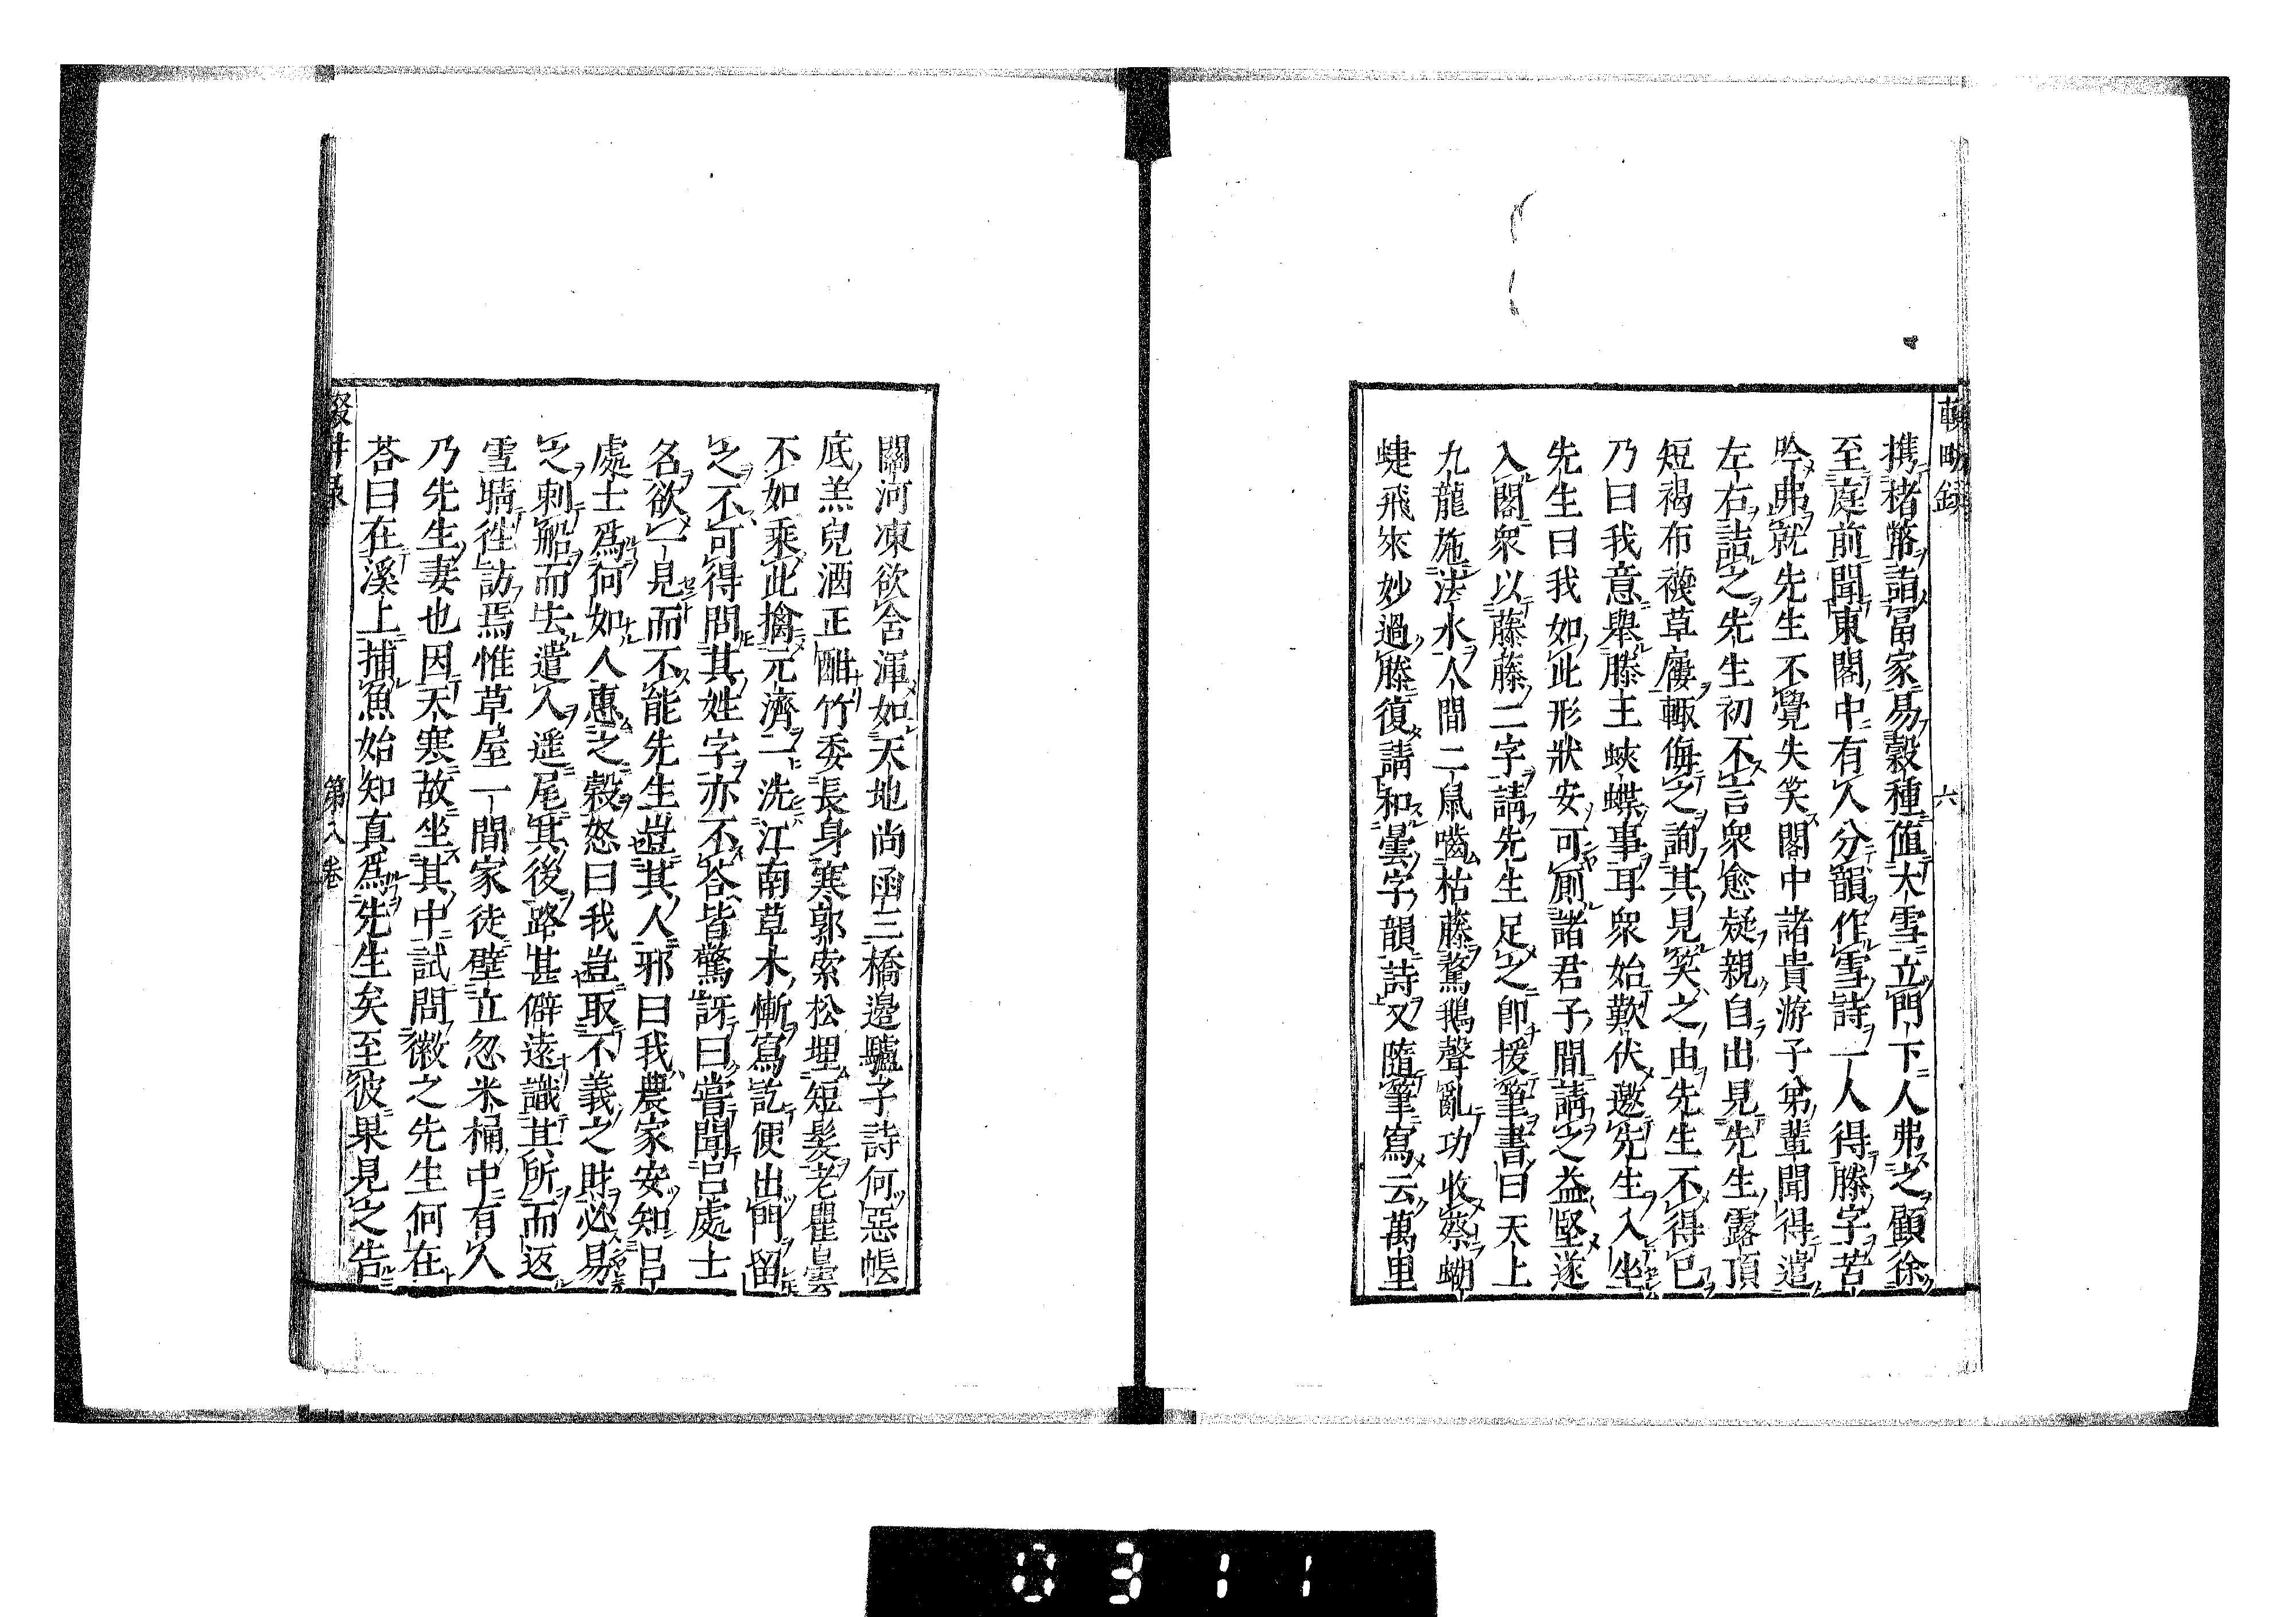 輟畊録
六
携楮幣詣冨家易穀種值大雪立門下人弗之顧徐
至庭前聞東閣中有人分韻作雪詩一人得滕字苦
吟弗就先生不覺失笑閣中諸貴游子弟輩聞得遣
左右詰之先生初不言衆愈疑親自出見先生露頂
短褐布襪草屨輒侮之詢其見笑之由先生不得已
乃曰我意舉滕王蛺蝶事耳衆始歎伏邀先生入坐
先生曰我如此形狀安可厠諸君子間請之益堅遂
入閣衆以藤滕二字請先生足之即援筆書曰天上
九龍施法水人間二鼠嚙枯藤鶩鵝聲亂功收蔡蝴
蜨飛來妙過滕復請和曇字韻詩又隨筆寫云萬里
關河凍欲含渾如天地尚函三橋邊驢子詩何惡帳
底羔兒酒正酣竹委長身寒郭索松埋短髮老瞿曇
不如乘此擒元濟一洗江南草木慚寫訖便出門留
之不可得問其姓字亦不答皆驚訝曰嘗聞呂處士
名欲一見而不能先生豈其人邪曰我農家安知呂
處士爲何如人惠之穀怒曰我豈取不義之財必易
之刺船而去遣人遥尾其後路甚僻遠識其所而返
雪晴往訪焉惟草屋一間家徒壁立忽米桶中有人
乃先生妻也因天寒故坐其中試問徽之先生何在
荅曰在溪上捕魚始知真爲先生矣至彼果見之告
輟畊録
第八卷
0311